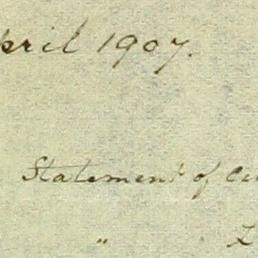 pril 1907.
Statement of
"